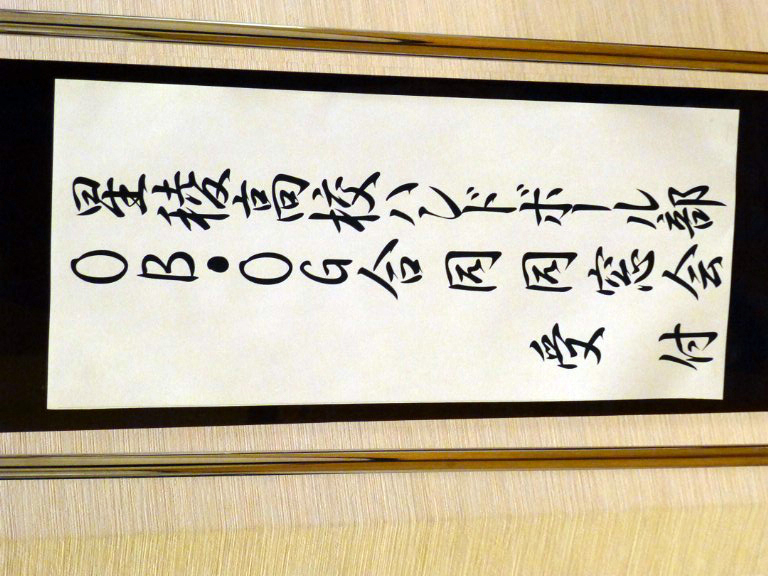 星稜高校ハンドボール部
OB・OG合同同窓会
受付